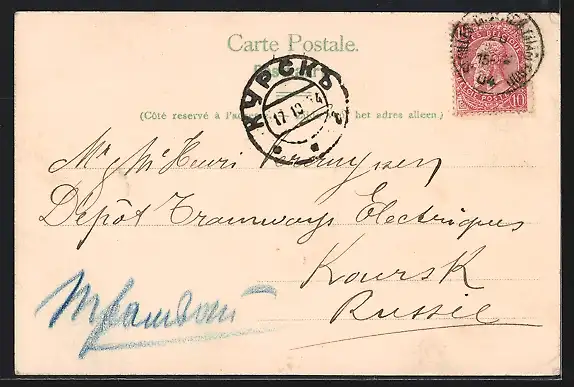 Carte Postale.
(Côté reservé à l'adresse het adres alleen.)
КУРСКЪ
17 10 04
10
04
Mr Henri
Dépôt Tramways Electriques
Koursk
Russie